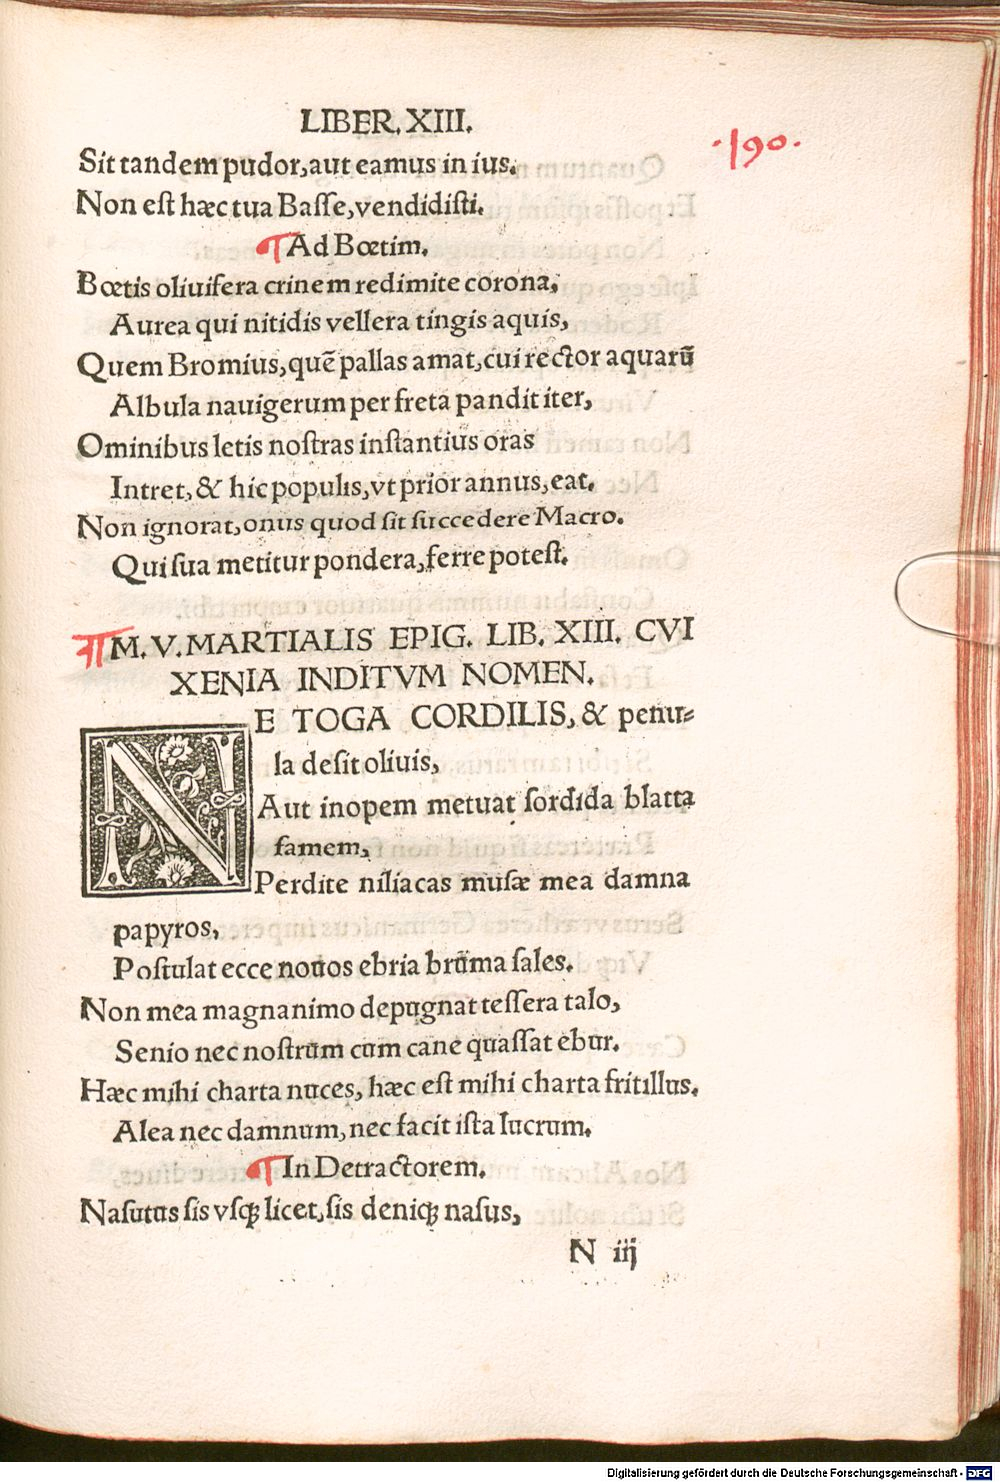 LIBER. XIII.
·190·
Sit tandem pudor, aut eamus in ius.
Non est hæc tua Basse, vendidisti.
¶Ad Bœtim.
Bœtis oliuifera crinem redimite corona,
Aurea qui nitidis vellera tingis aquis,
Quem Bromius, quē pallas amat, cui rector aquarū
Albula nauigerum per freta pandit iter,
Ominibus letis nostras instantius oras
Intret, & hic populis, vt prior annus, eat.
Non ignorat, onus quod sit succedere Macro.
Qui sua metitur pondera, ferre potest.
¶M. V. MARTIALIS EPIG. LIB. XIII. CVI
XENIA INDITVM NOMEN.
NE TOGA CORDILIS, & penu-
la desit oliuis,
Aut inopem metuat sordida blatta
famem,
Perdite niliacas musæ mea damna
papyros,
Postulat ecce nouos ebria bruma sales.
Non mea magnanimo depugnat tessera talo,
Senio nec nostrum cum cane quassat ebur.
Hæc mihi charta nuces, hæc est mihi charta fritillus.
Alea nec damnum, nec facit ista lucrum.
¶In Detractorem.
Nasutus sis vsqꝫ licet, sis deniqꝫ nasus,
N iij
Digitalisierung gefördert durch die Deutsche Forschungsgemeinschaft - DFG